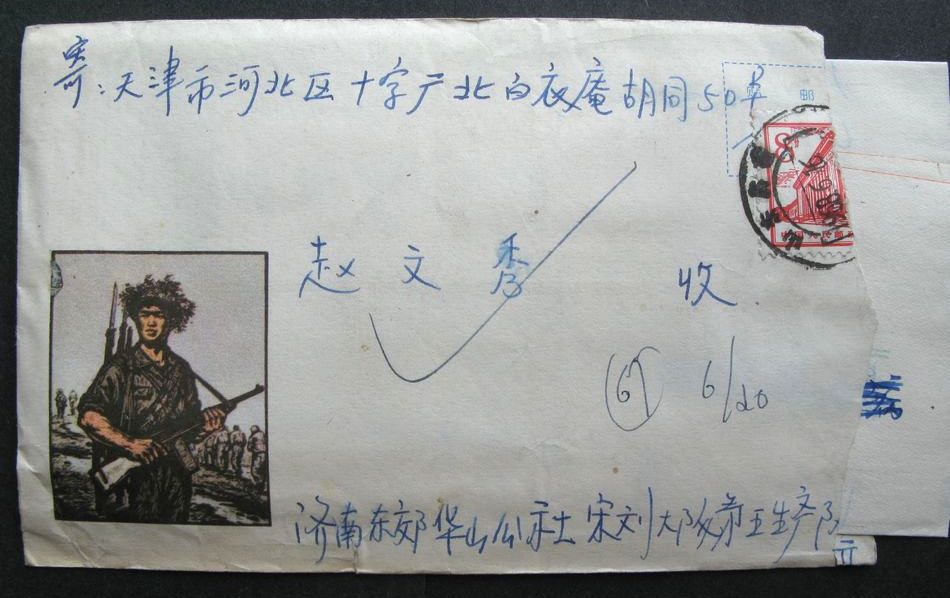 寄：天津市河北区十字产北白衣庵胡同50号
邮
8
中国人民邮
赵文秀 收
⑥ 6/20
济南东郊华山公社宋刘大队第五生产队